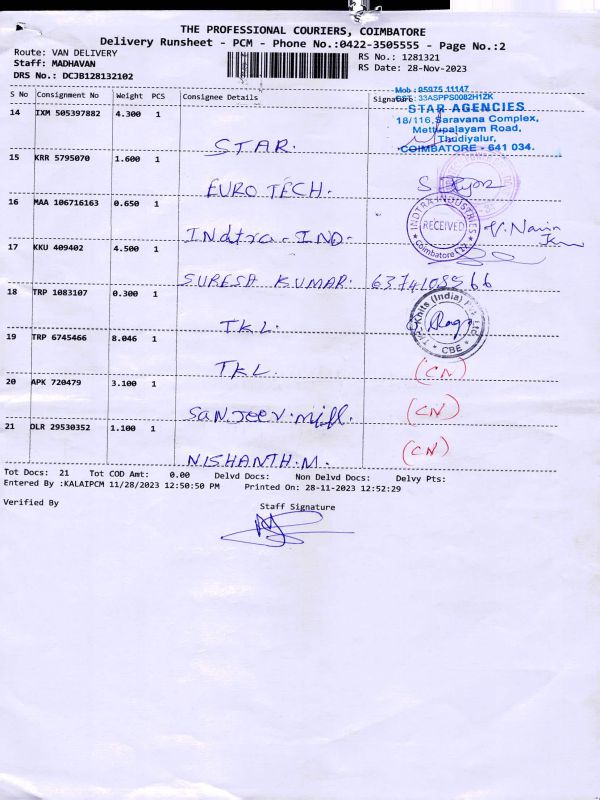 THE PROFESSIONAL COURIERS, COIMBATORE
Delivery Runsheet - PCM - Phone No.:0422-3505555 - Page No.:2
Route: VAN DELIVERY
Staff: MADHAVAN
DRS No.: DCJB128132102
RS No.: 1281321
RS Date: 28-Nov-2023
S No Consignment No Weight PCS Consignee Details Signature
Mob : 95975 11147
GST: 33ASPPS0082H1ZK
STAR AGENCIES
18/116, Saravana Complex,
Mettupalayam Road,
Thudiyalur,
COIMBATORE - 641 034.
14 IXM 505397882 4.300 1
STAR.
15 KRR 5795070 1.600 1
EURO TECH.
16 MAA 106716163 0.650 1
INdtra-IND-
INDTRA INDUSTRIES
RECEIVED
Coimbatore
17 KKU 409402 4.500 1
SURESH KUMAR.
18 TRP 1083107 0.300 1
TKL.
Knits (India)
CBE
19 TRP 6745466 8.046 1
TKL (CN)
20 APK 720479 3.100 1
Sanjeev. (CN)
21 DLR 29530352 1.100 1
NISHANTH.M. (CN)
Tot Docs: 21 Tot COD Amt: 0.00 Delvd Docs: Non Delvd Docs: Delvy Pts:
Entered By :KALAIPCM 11/28/2023 12:50:50 PM Printed On: 28-11-2023 12:52:29
Verified By
Staff Signature